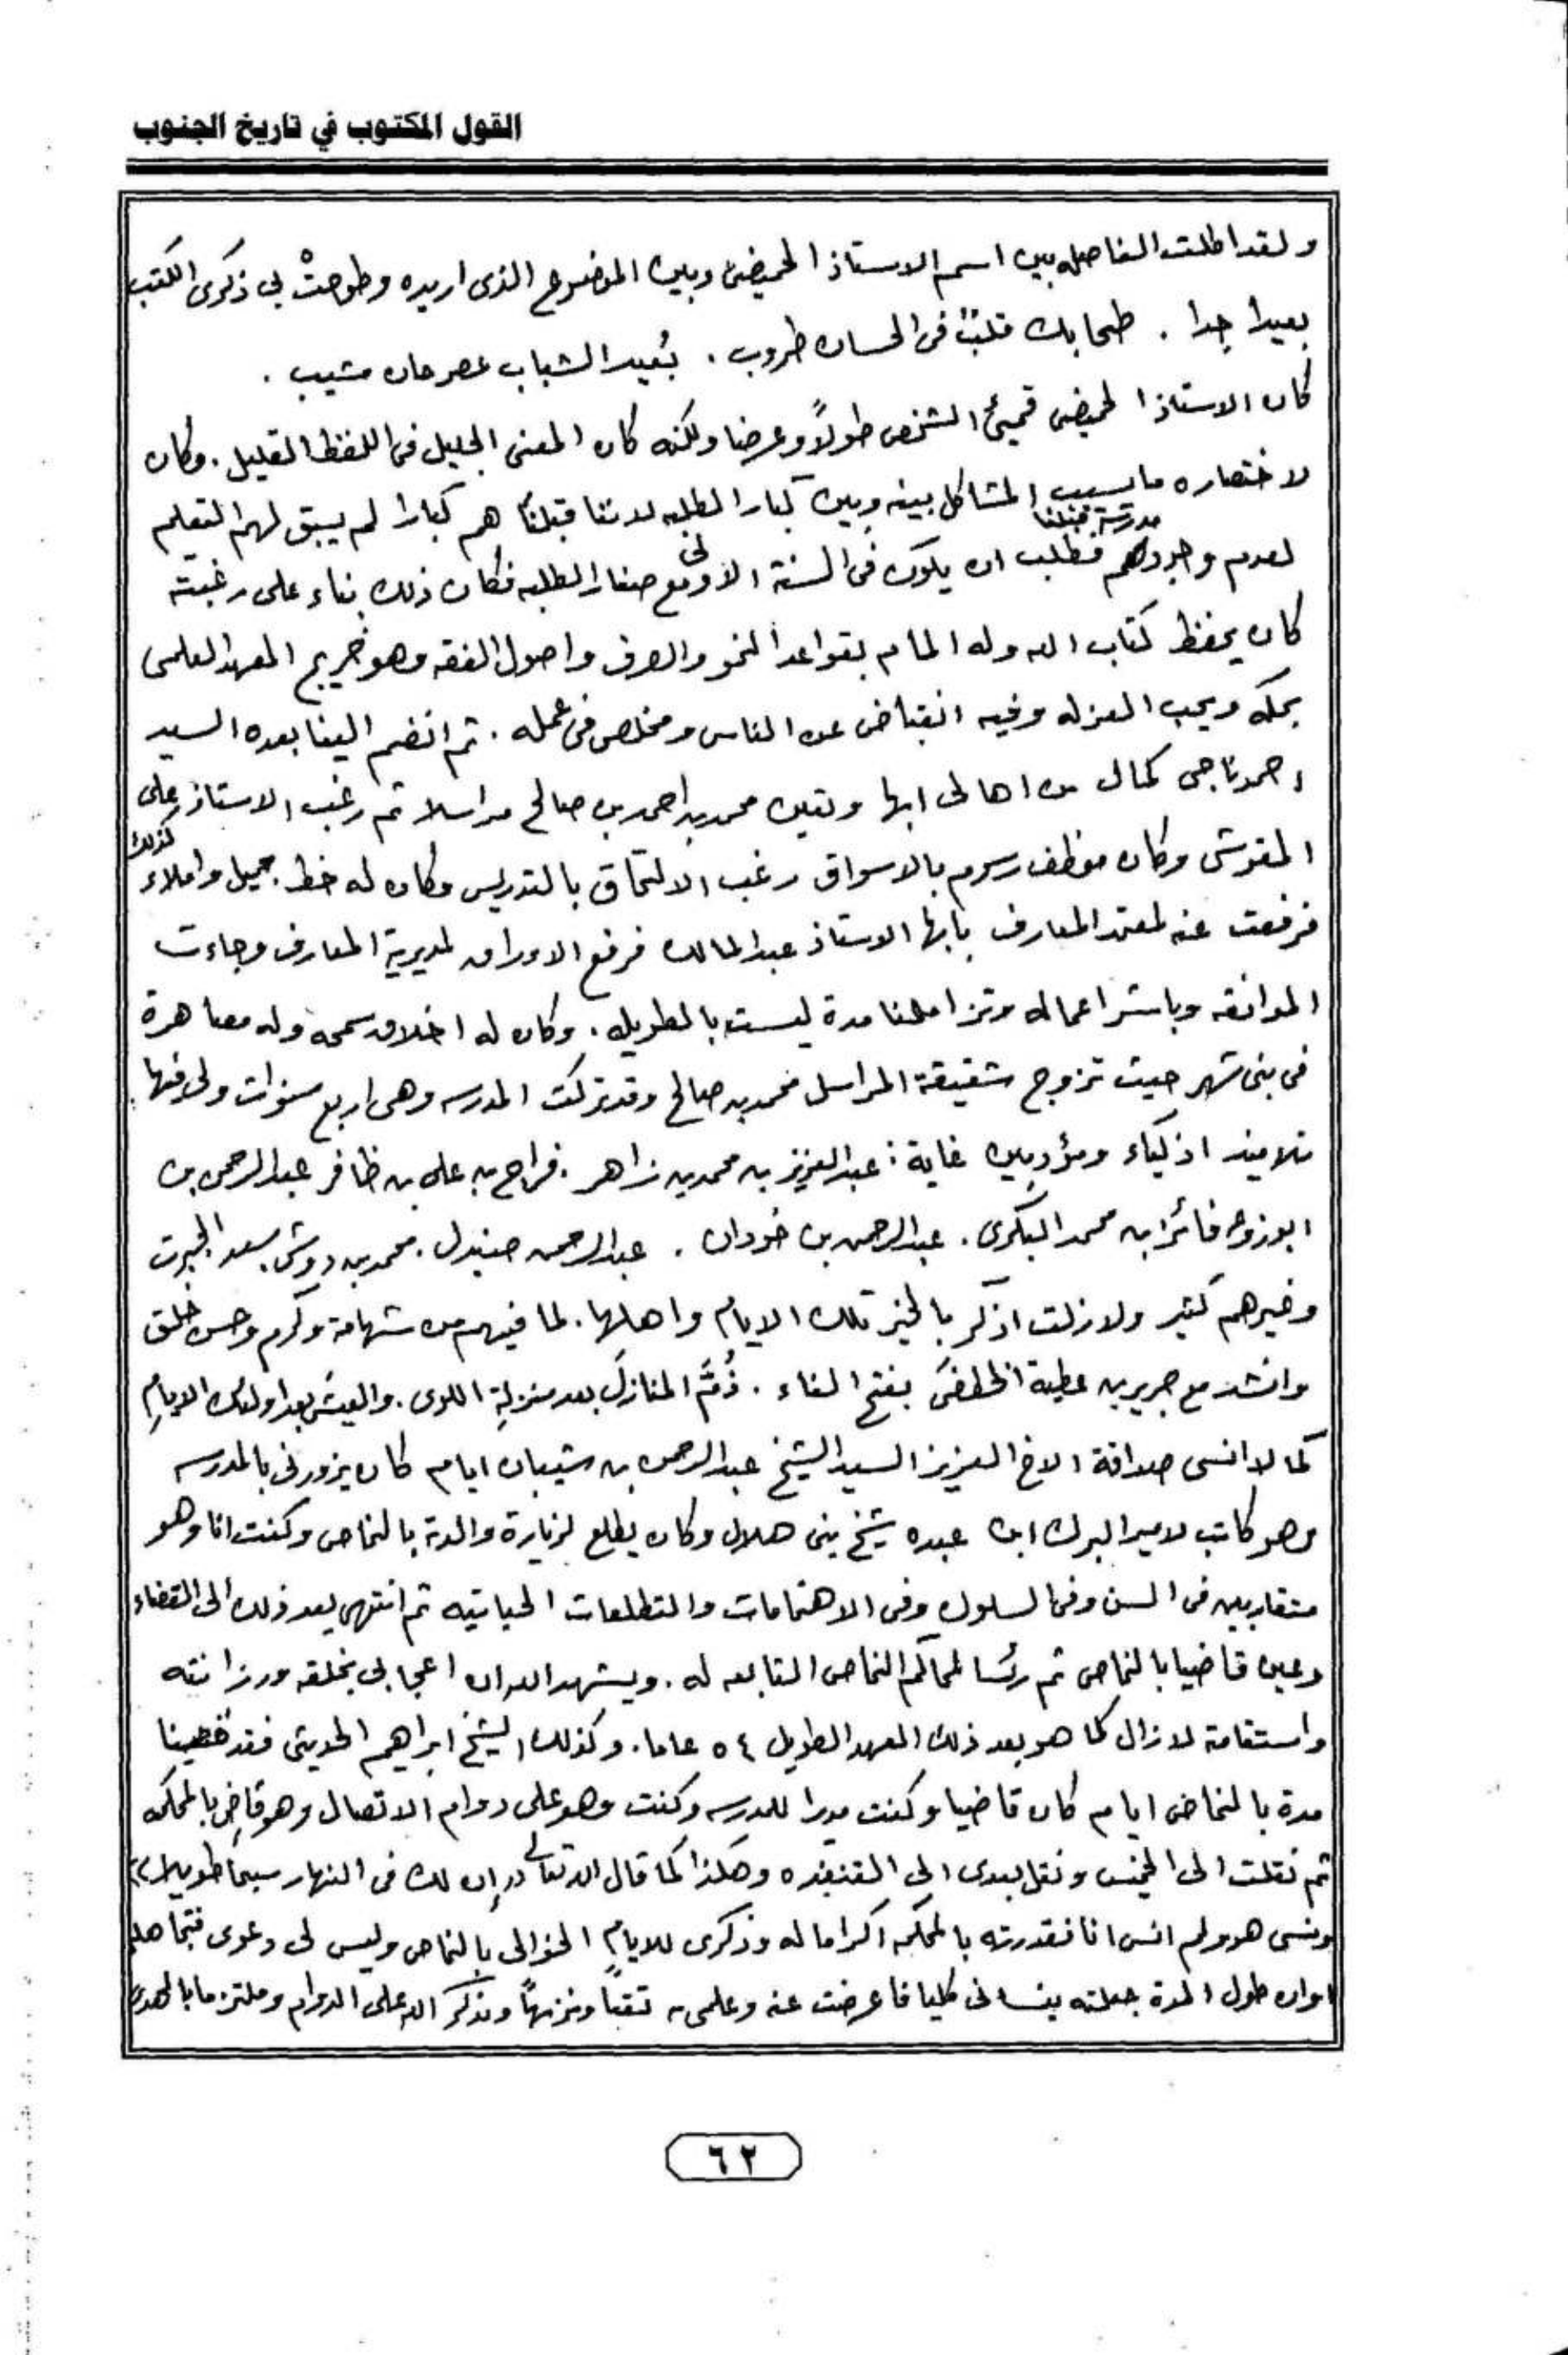 القول المكتوب في تاريخ الجنوب
ولقد اطلت الفاصله بين اسم الاستاذ الحميضى وبين الموضوع الذى اريده وطوحتْ بى ذكرى الكتب
بعيدا جدا . طحا بك قلبٌ فى الحسان طروب . بُعيد الشباب عصر حان مشيب .
كان الاستاذ الحميضى قميئ الشخص طولاً وعرضا ولكنه كان المعنى الجليل فى اللفظ القليل . وكان
لاختصاره ما يسبب المشاكل بينه وبين كبار الطلبه لاننا قبلنا هم كبارا لم يسبق لهم التعلم
لعدم وجود مدرسة قبلنا فطلب ان يكون فى السنة الاولى مع صغار الطلبه فكان ذلك بناء على رغبته
كان يحفظ كتاب الله وله المام بقواعد النحو والصرف واصول الفقه وهو خريج المعهد العلمى
بمكه ويحب العزله وفيه انقباض عن الناس ومخلص فى عمله . ثم انضم الينا بعده السيد
احمد ناجى كمال من اهالى ابها وتعين محمد بن احمد بن صالح مراسلا ثم رغب الاستاذ على
المقوشى وكان موظف رسوم بالاسواق رغب الالتحاق بالتدريس وكان له خط جميل واملاء كذلك
فرفعت عنه لمعتمد المعارف بابها الاستاذ عبدالمالك فرفع الاوراق لمديرية المعارف وجاءت
الموافقه وباشر اعماله وتزاملنا مدة ليست بالطويله . وكان له اخلاق سمحه وله مصاهرة
فى بنى شهر حيث تزوج شقيقة المراسل محمد بن صالح وقد تركت المدرسه وهى اربع سنوات ولى فيها
تلاميذ اذكياء ومؤدبين غاية : عبدالعزيز بن محمد بن زاهر . فراج بن على بن ظافر عبدالرحمن بن
ابوزوه فائز ابن محمد البكرى . عبدالرحمن بن خودان . عبدالرحمن صنيدل . محمد بن دوش . سعد
وغيرهم كثير ولازلت اذكر بالخير تلك الايام واهلها . لما فيهم من شهامة وكرم وحسن خلق
وانشد مع جرير بن عطية الخطفى بفتح الفاء . ذُمَّ المنازلَ بعد منزلةِ اللوى . والعيشَ بعد اولئك الايامِ
كما لا انسى صداقة الاخ العزيز السيد الشيخ عبدالرحمن بن شيبان ايام كان يزورنى بالمدرسه
وهو كاتب لامير البرك ابن عبده شيخ بنى هلال وكان يطلع لزيارة والدة بالنماص وكنت انا وهو
متقاربين فى السن وفى السلوك وفى الاهتمامات والتطلعات الحياتيه ثم انتهى بعد ذلك الى القضاء
وعين قاضيا بالنماص ثم رئسا لمحاكم النماص التابعه له . ويشهد الله ان اعجابى بخلقه ورزانته
واستقامة لازال كما هو بعد ذلك العهد الطويل ٥٤ عاما . وكذلك الشيخ ابراهيم الحديثى فقد قضينا
مدة بالنماص ايام كان قاضيا وكنت مديرا للمدرسه وكنت وهو على دوام الاتصال وهو قاضٍ بالمحكمه
ثم نقلت الى الخميس ونقل بعدى الى القنفذه وهكذا كما قال الله تعالى (( ان لك فى النهار سبحا طويلا ))
ونسى هو ولم انس انا فقد زرته بالمحكمه اكراما له وذكرى للايام الخوالى بالنماص وليس لى دعوى فتجاهلنى
اوان طول المدة جعلته ينسانى كليا فاعرضت عنه وعلمى به تقياً ونزيهاً ويذكر الله على الدوام وملتزما بالهدى
٦٢